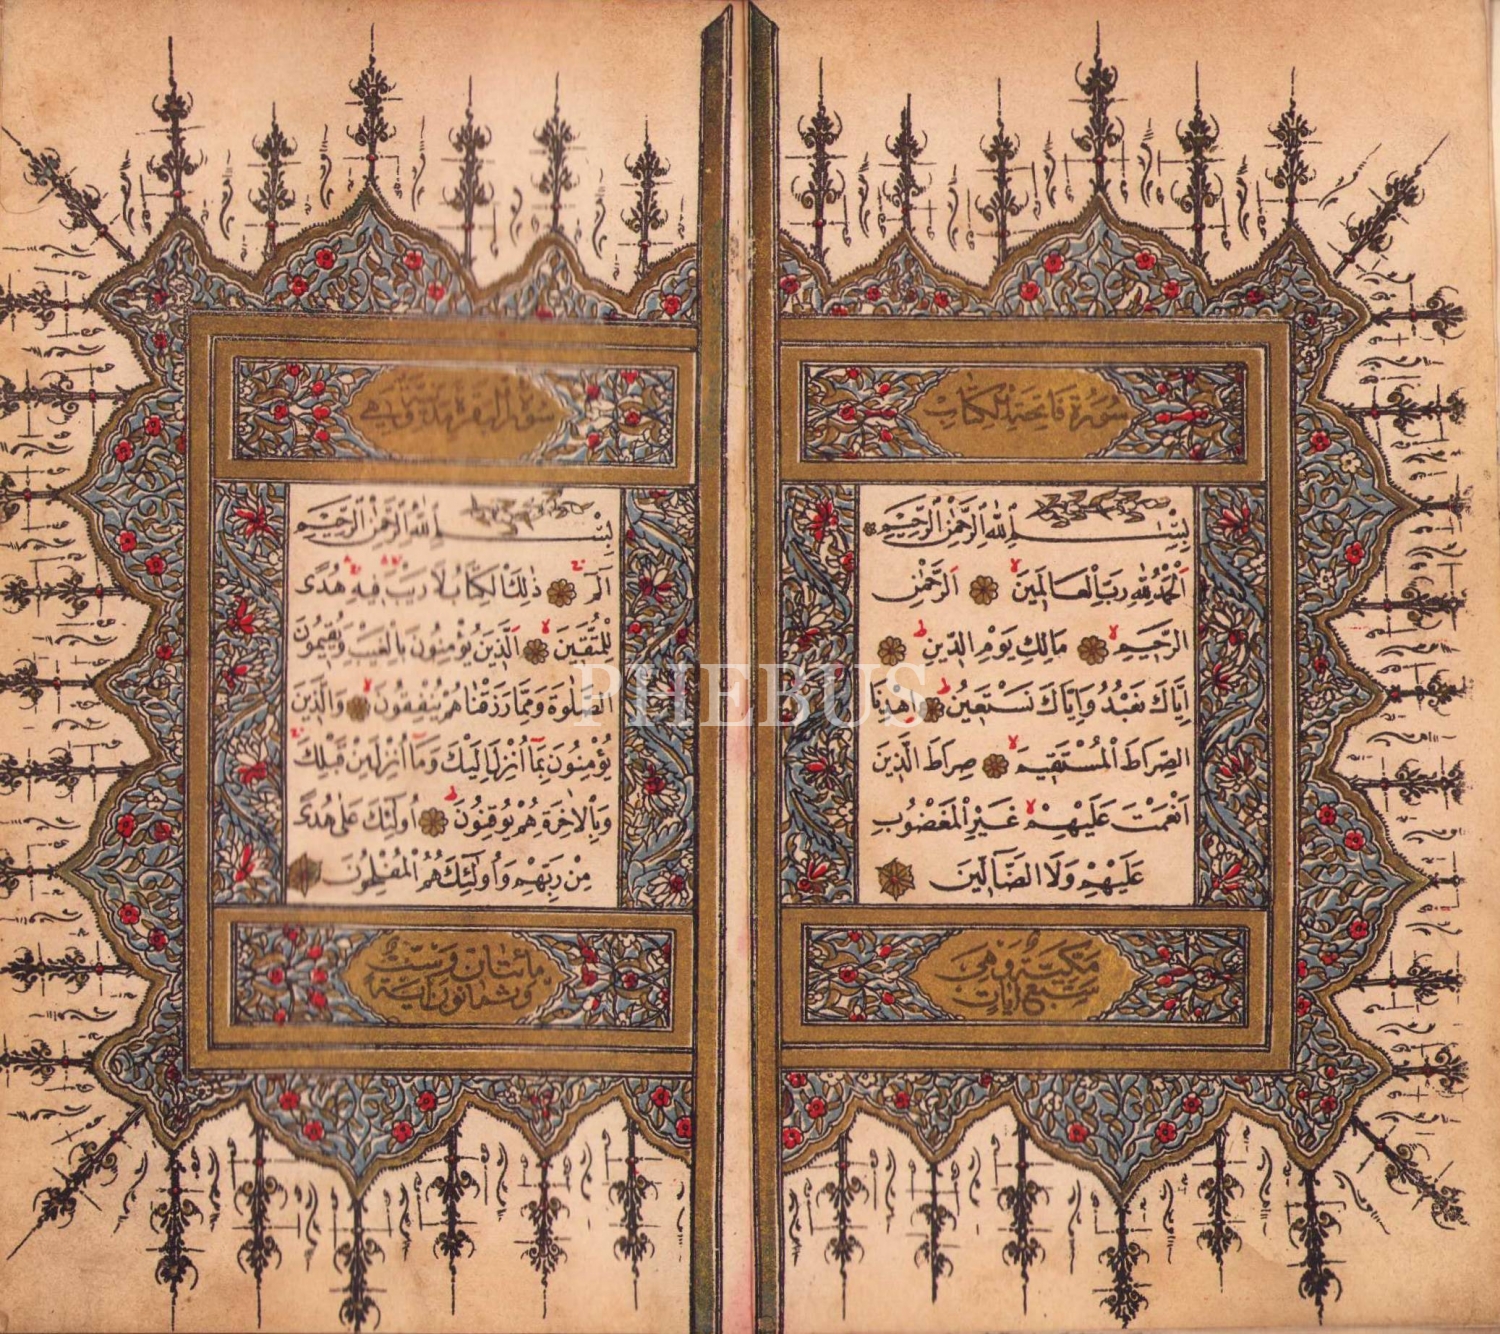 سورة فاتحة الكتاب
بِسْمِ اللهِ الرَّحْمٰنِ الرَّحِيمِ
اَلْحَمْدُ لِلهِ رَبِّ الْعَالَمِينَ اَلرَّحْمٰنِ
الرَّحِيمِ مَالِكِ يَوْمِ الدِّينِ
اِيَّاكَ نَعْبُدُ وَاِيَّاكَ نَسْتَعِينُ اِهْدِنَا
الصِّرَاطَ الْمُسْتَقِيمَ صِرَاطَ الَّذِينَ
اَنْعَمْتَ عَلَيْهِمْ غَيْرِ الْمَغْضُوبِ
عَلَيْهِمْ وَلَا الضَّالِّينَ
مكية وهي
سبع آيات
سورة البقرة مدنية وهي
بِسْمِ اللهِ الرَّحْمٰنِ الرَّحِيمِ
الم ذٰلِكَ الْكِتَابُ لَا رَيْبَ فِيهِ هُدًى
لِلْمُتَّقِينَ اَلَّذِينَ يُؤْمِنُونَ بِالْغَيْبِ وَيُقِيمُونَ
الصَّلٰوةَ وَمِمَّا رَزَقْنَاهُمْ يُنْفِقُونَ وَالَّذِينَ
يُؤْمِنُونَ بِمَا اُنْزِلَ اِلَيْكَ وَمَا اُنْزِلَ مِنْ قَبْلِكَ
وَبِالْاٰخِرَةِ هُمْ يُوقِنُونَ اُولٰئِكَ عَلٰى هُدًى
مِنْ رَبِّهِمْ وَاُولٰئِكَ هُمُ الْمُفْلِحُونَ
مائتان وست
وثمانون آية
PHEBUS